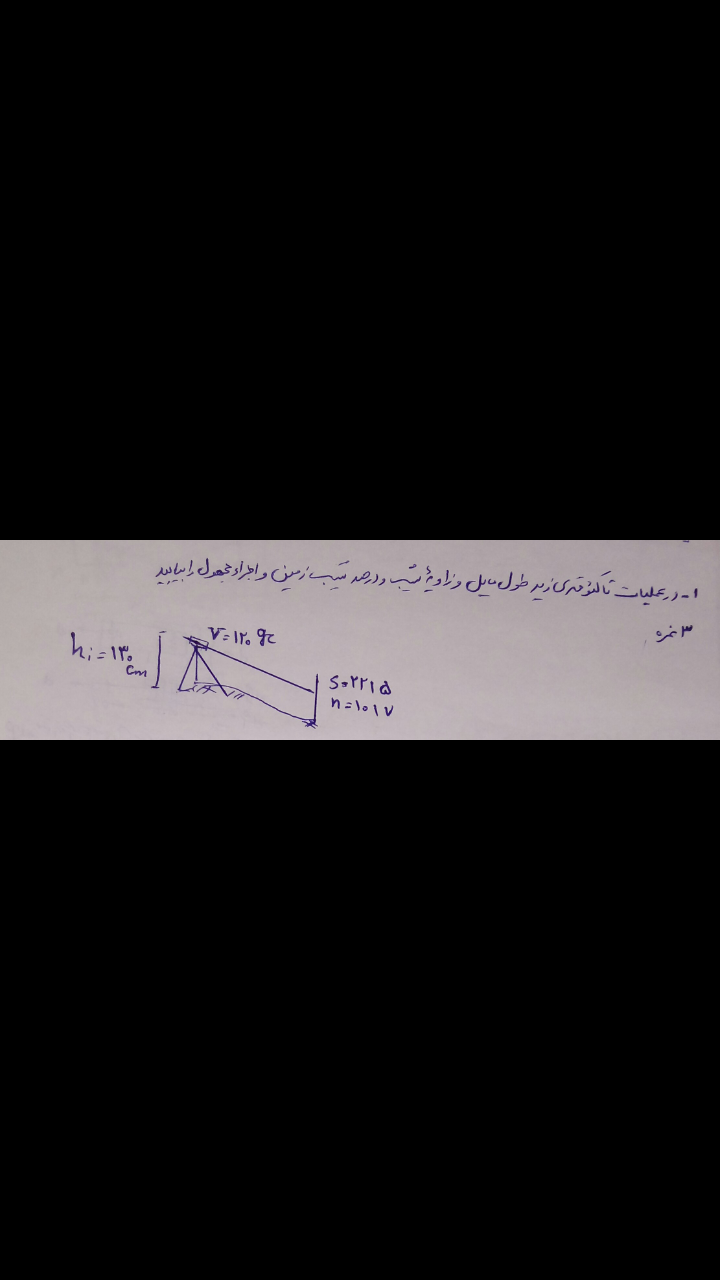 ۱- در عملیات تاکئومتری زیر طول مایل و زاویهٔ شیب و درصد شیب زمین و اجزاء مجهول را بیابید
۳ نمره
V=۱۲۰ gr
hi=۱۳۰ cm
S=۲۲۱۵
n=۱۰۱۷